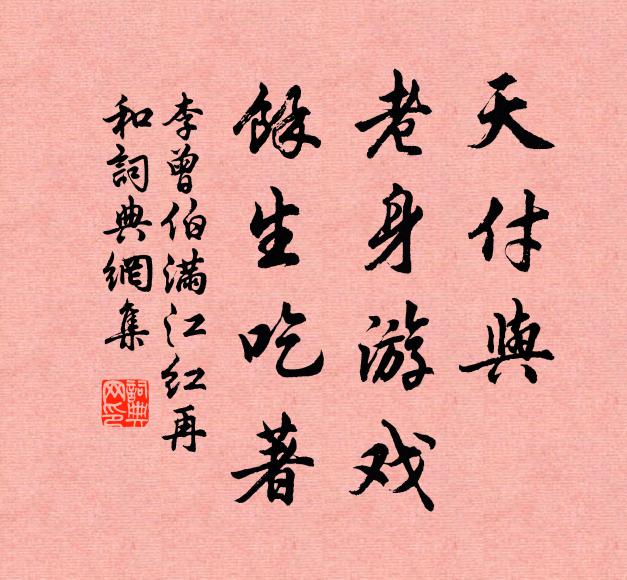 天付與
老身游戏
餘生吃著
李曾伯满江红再
和詞典網集
詞典网印